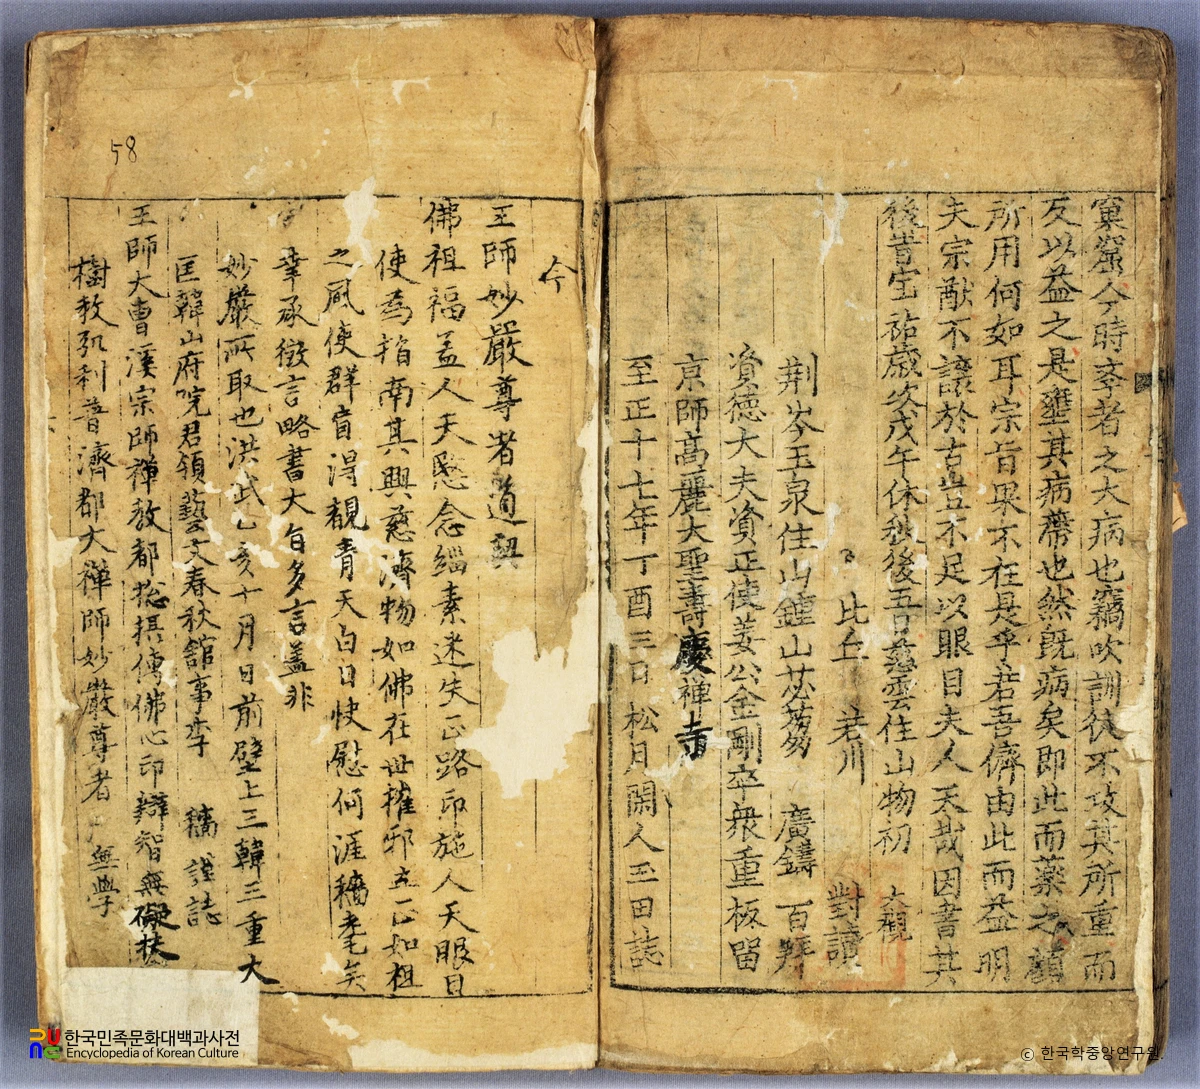 窠窟今時業者之大病也竊吹訓徒不攻其所重而
反以益之是壅其病蔕也然旣病矣即此而藥之顧
所用何如耳宗旨果不在是乎若吾儕由此而益明
夫宗猷不讓於古豈不足以眼目夫人天哉因書其
後昔宝祐歳次戊午休秋後五日龜雲住山物初
大觀
比丘 若川 對讀
荆岑玉泉住山鍾山苾蒭 廣鑄 百拜
資德大夫資正使姜公金剛卒衆重板留
京師高麗大聖壽慶禅寺
至正十七年丁酉三日 松月閑人玉田誌
今
王師妙嚴尊者道與
佛祖福盖人天愍念緇素迷失正路印施人天眼目
使爲指南其興慈濟物如佛在世摧邪立正如祖
之風使群盲淂覩青天白日快慰何涯穡耄矣
幸承徵言略書大旨多言盖非
妙嚴所取也洪武乙亥十月日前壁上三韓三重大
匡韓山府院君領藝文春秋館事李 穡 謹誌
王師大曹溪宗師禅敎都揔攝傳佛心印辯智無礙扶
樹敎弘利普濟都大禅師妙嚴尊者 無學
58
한국민족문화대백과사전
Encyclopedia of Korean Culture
ⓒ 한국학중앙연구원.